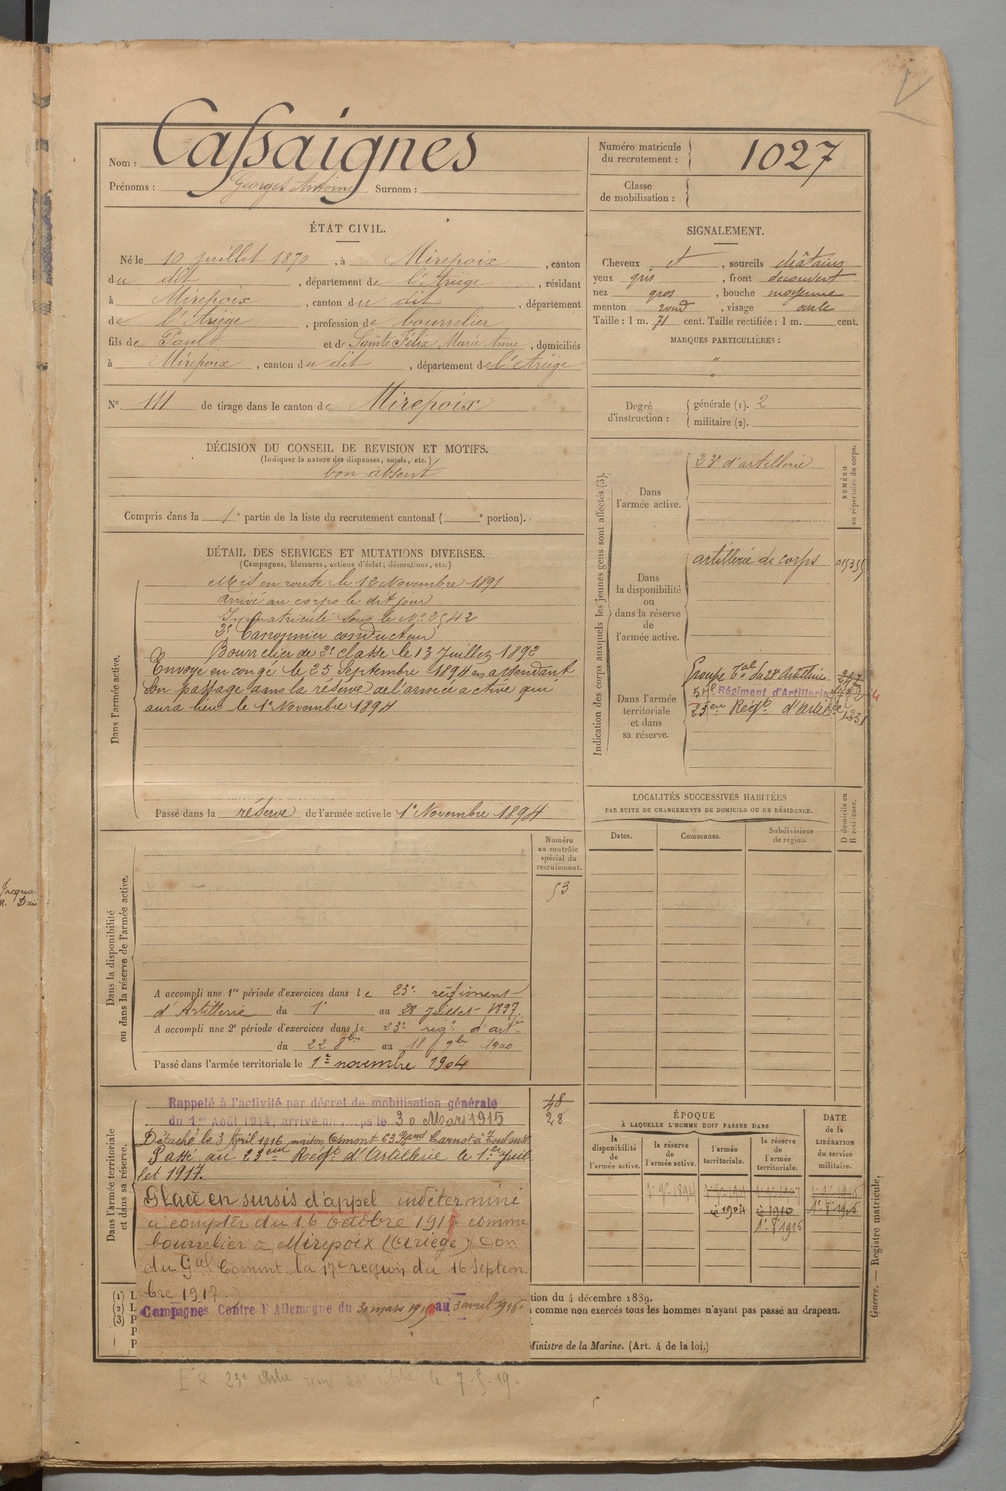 Nom : Cassaignes
Prénoms : Georges Antoine Surnom :
Numéro matricule du recrutement : 1027
Classe de mobilisation :
ÉTAT CIVIL.
Né le 10 juillet 1870, à Mirepoix, canton
du dit, département de l'Ariège, résidant
à Mirepoix, canton du dit, département
de l'Ariège, profession de bourrelier
fils de Paul et de Sainte Félix Marie Anne, domiciliés
à Mirepoix, canton du dit, département de l'Ariège
N° 111 de tirage dans le canton de Mirepoix
DÉCISION DU CONSEIL DE REVISION ET MOTIFS.
(Indiquer la nature des dispenses, sursis, etc.)
bon absent
Compris dans la 1e partie de la liste du recrutement cantonal ( e portion).
SIGNALEMENT.
Cheveux et, sourcils châtains
yeux gris, front découvert
nez gros, bouche moyenne
menton rond, visage ovale
Taille : 1 m. 71 cent. Taille rectifiée : 1 m. cent.
MARQUES PARTICULIÈRES :
"
"
Degré d'instruction : générale (1). 2
militaire (2).
DÉTAIL DES SERVICES ET MUTATIONS DIVERSES.
(Campagnes, blessures, actions d'éclat, décorations, etc.)
Dans l'armée active.
Mis en route le 12 Novembre 1891
arrivé au corps le dit jour
Immatriculé sous le N°
2e Canonnier conducteur
Bourrelier de 2e classe le 13 Juillet 1892
Envoyé en congé le 25 Septembre 1894 en attendant
son passage dans la réserve de l'armée active qui
aura lieu le 1er Novembre 1894
Passé dans la réserve de l'armée active le 1er Novembre 1894
Indication des corps auxquels les jeunes gens sont affectés (3).
NUMÉRO au répertoire du corps.
Dans l'armée active.
23e d'artillerie
Dans la disponibilité ou dans la réserve de l'armée active.
artillerie de corps
Dans l'armée territoriale et dans sa réserve.
Groupe Tal du 23e Artillerie
Régiment d'Artillerie
23eme Régt d'artie
LOCALITÉS SUCCESSIVES HABITÉES
PAR SUITE DE CHANGEMENTS DE DOMICILE OU DE RÉSIDENCE.
Dates. Communes. Subdivisions de région. D domicile ou R résidence.
Dans la disponibilité ou dans la réserve de l'armée active.
Numéro au contrôle spécial du recrutement.
53
A accompli une 1re période d'exercices dans le 23e régiment
d'Artillerie du 1er au 28 Juillet 1897.
A accompli une 2e période d'exercices dans le 23e regt d'artie
du 22 8bre au 18 9bre 1900
Passé dans l'armée territoriale le 1er novembre 1904
Dans l'armée territoriale et dans sa réserve.
48
28
Rappelé à l'activité par décret de mobilisation générale
du 1er Août 1914, arrivé au corps le 30 Mars 1915
Détaché le 3 Avril 1916 maison Osmont 63 Bard Carnot à Toulouse
Passé au 23eme Régt d'Artillerie le 1er Juil
let 1917.
Placé en sursis d'appel indéterminé
à compter du 16 octobre 1917 comme
bourrelier à Mirepoix (Ariège) Don
du Gal Commt. la 17e region du 16 Septem
bre 1917.
Campagnes Contre l'Allemagne du 30 mars 1915 au 3 avril 1916
ÉPOQUE
À LAQUELLE L'HOMME DOIT PASSER DANS
la disponibilité de l'armée active. la réserve de l'armée active. l'armée territoriale. la réserve de l'armée territoriale.
DATE de la LIBÉRATION du service militaire.
1er 9e 1894
9e 1904
1910
1er 8e 1916
(1) L
(2) L
(3) P
tion du 4 décembre 1889.
comme non exercés tous les hommes n'ayant pas passé au drapeau.
Ministre de la Marine. (Art. 4 de la loi.)
Guerre. — Registre matricule.